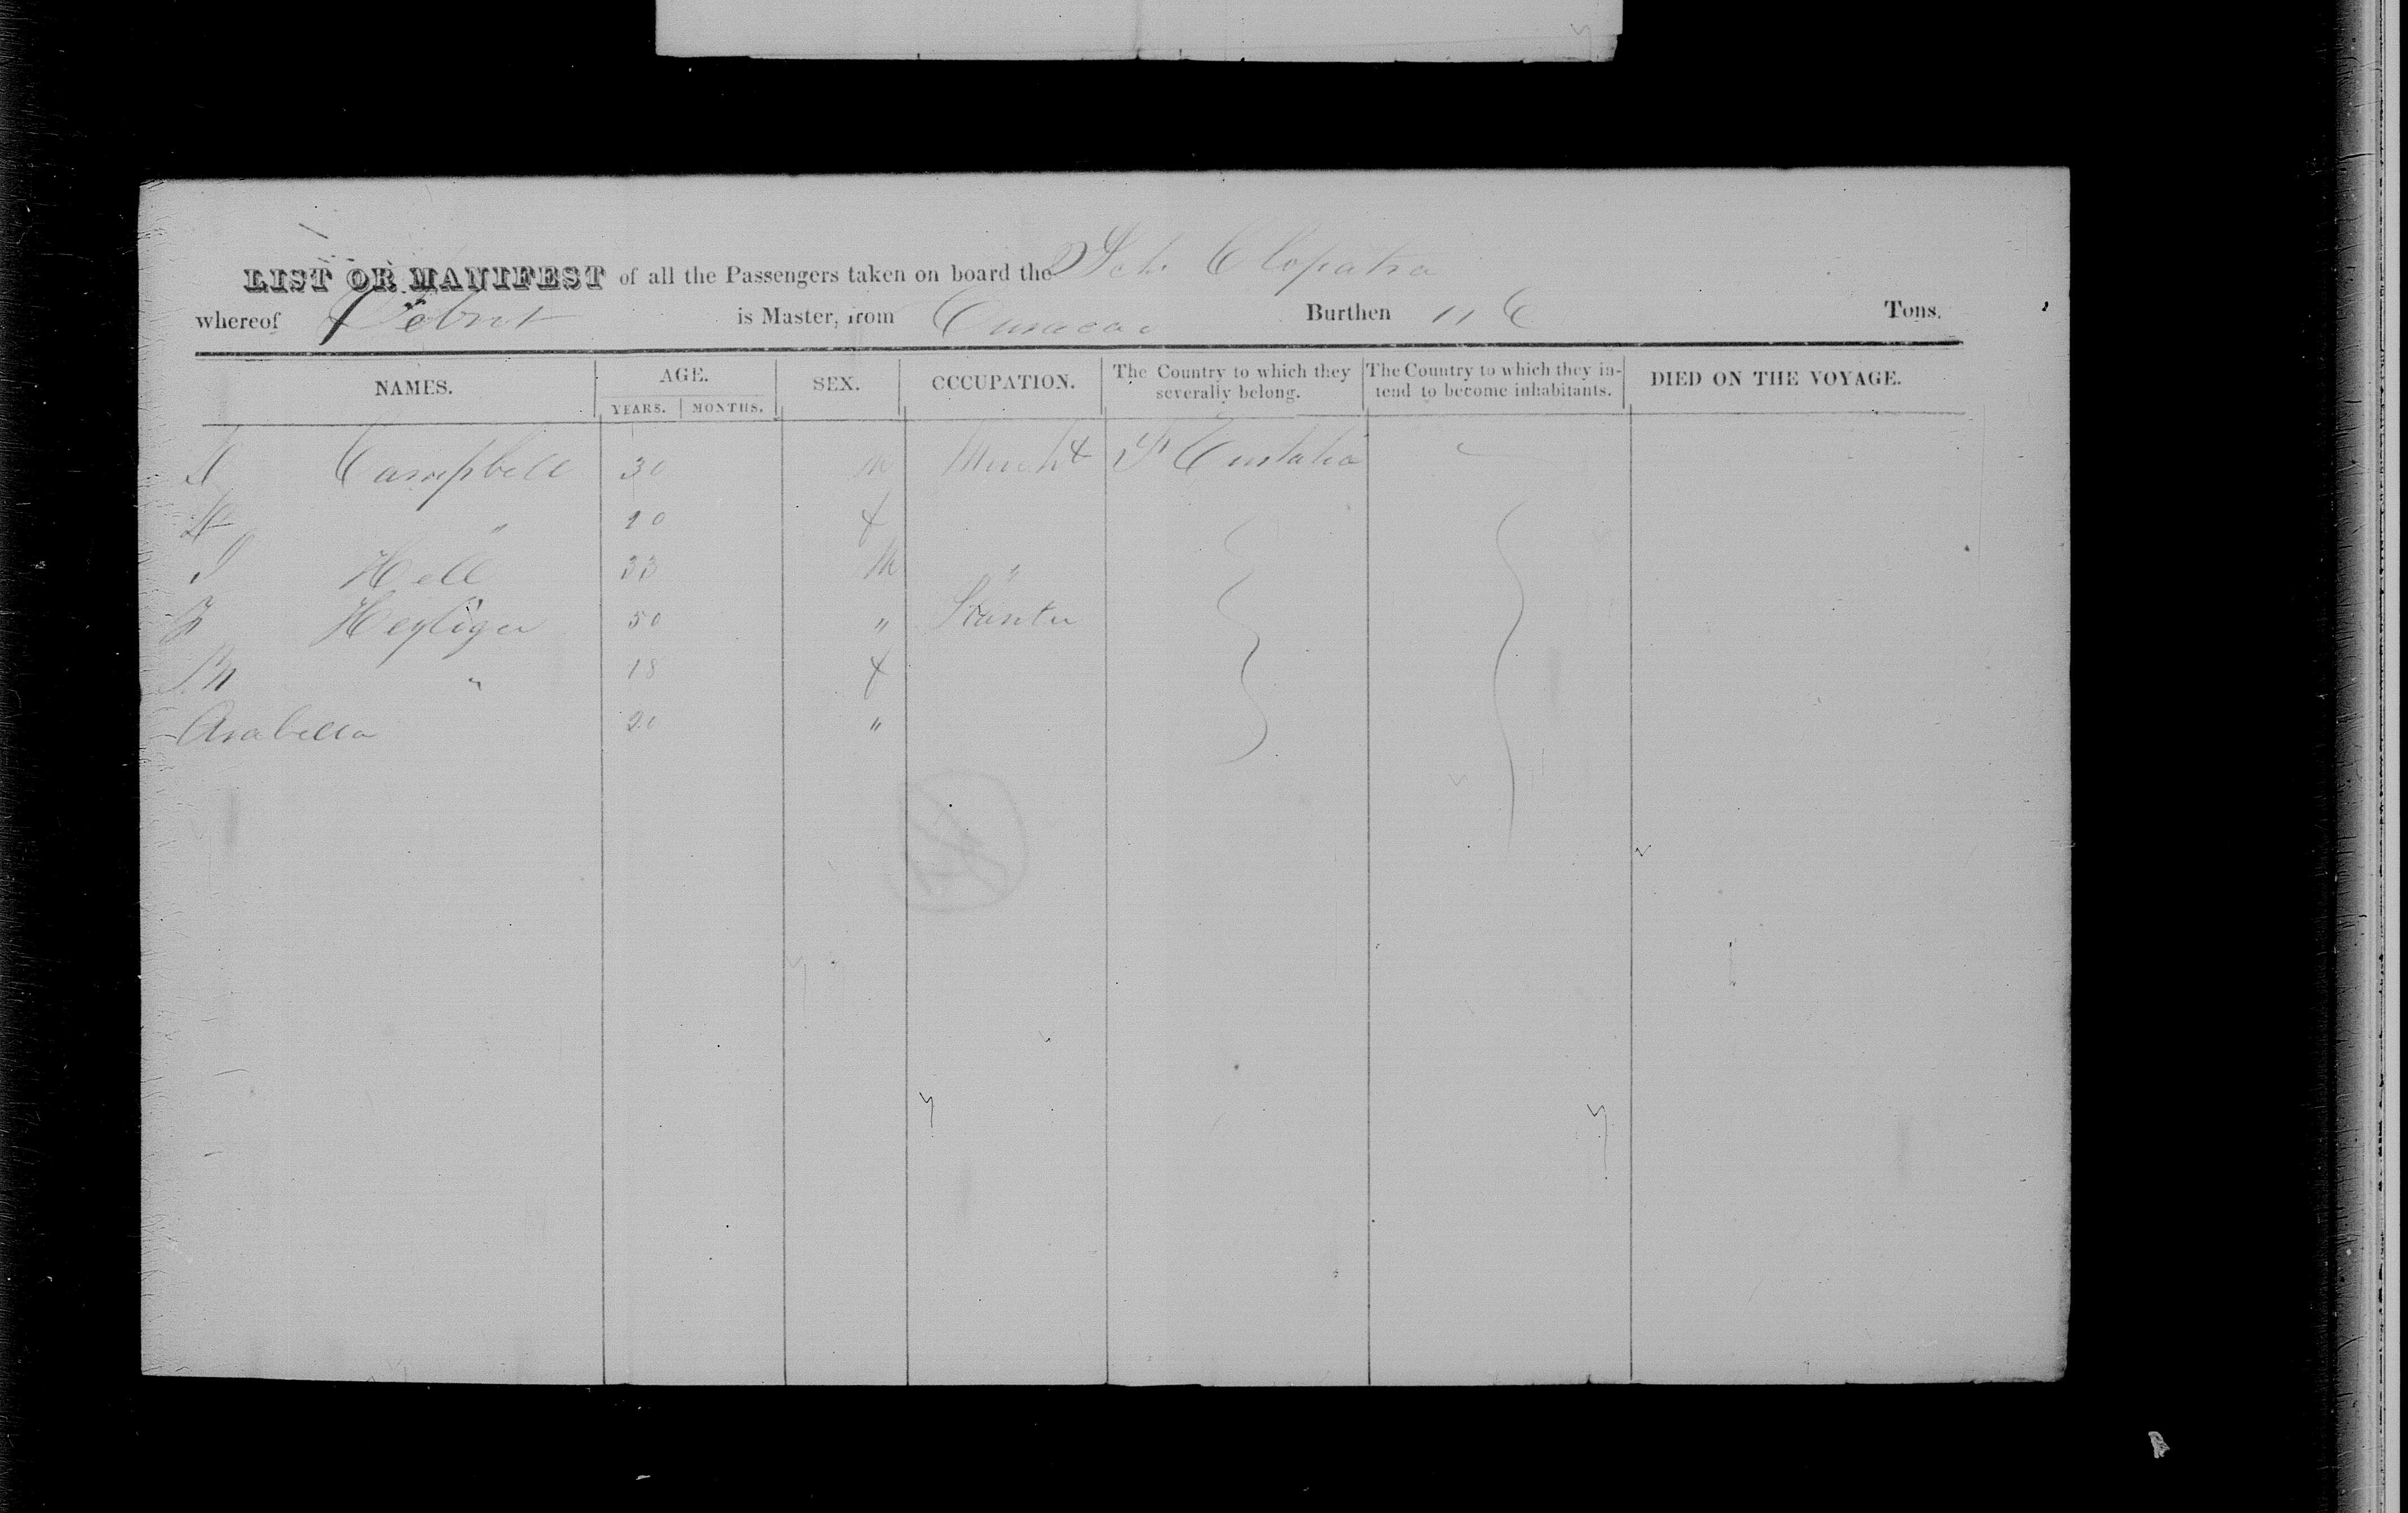 LIST OR MANIFEST of all the Passengers taken on board the Sch. Clopatra
whereof is Master, from Curacao Burthen 116 Tons.
NAMES. AGE. SEX. OCCUPATION. The Country to which they severally belong. The Country to which they intend to become inhabitants. DIED ON THE VOYAGE.
YEARS. MONTHS.
Campbell 30 M Mercht St Eustatia
" f
J Hell 33 M "
Heyliger 50 " Planter
M " 18 f
Arabella 20 "